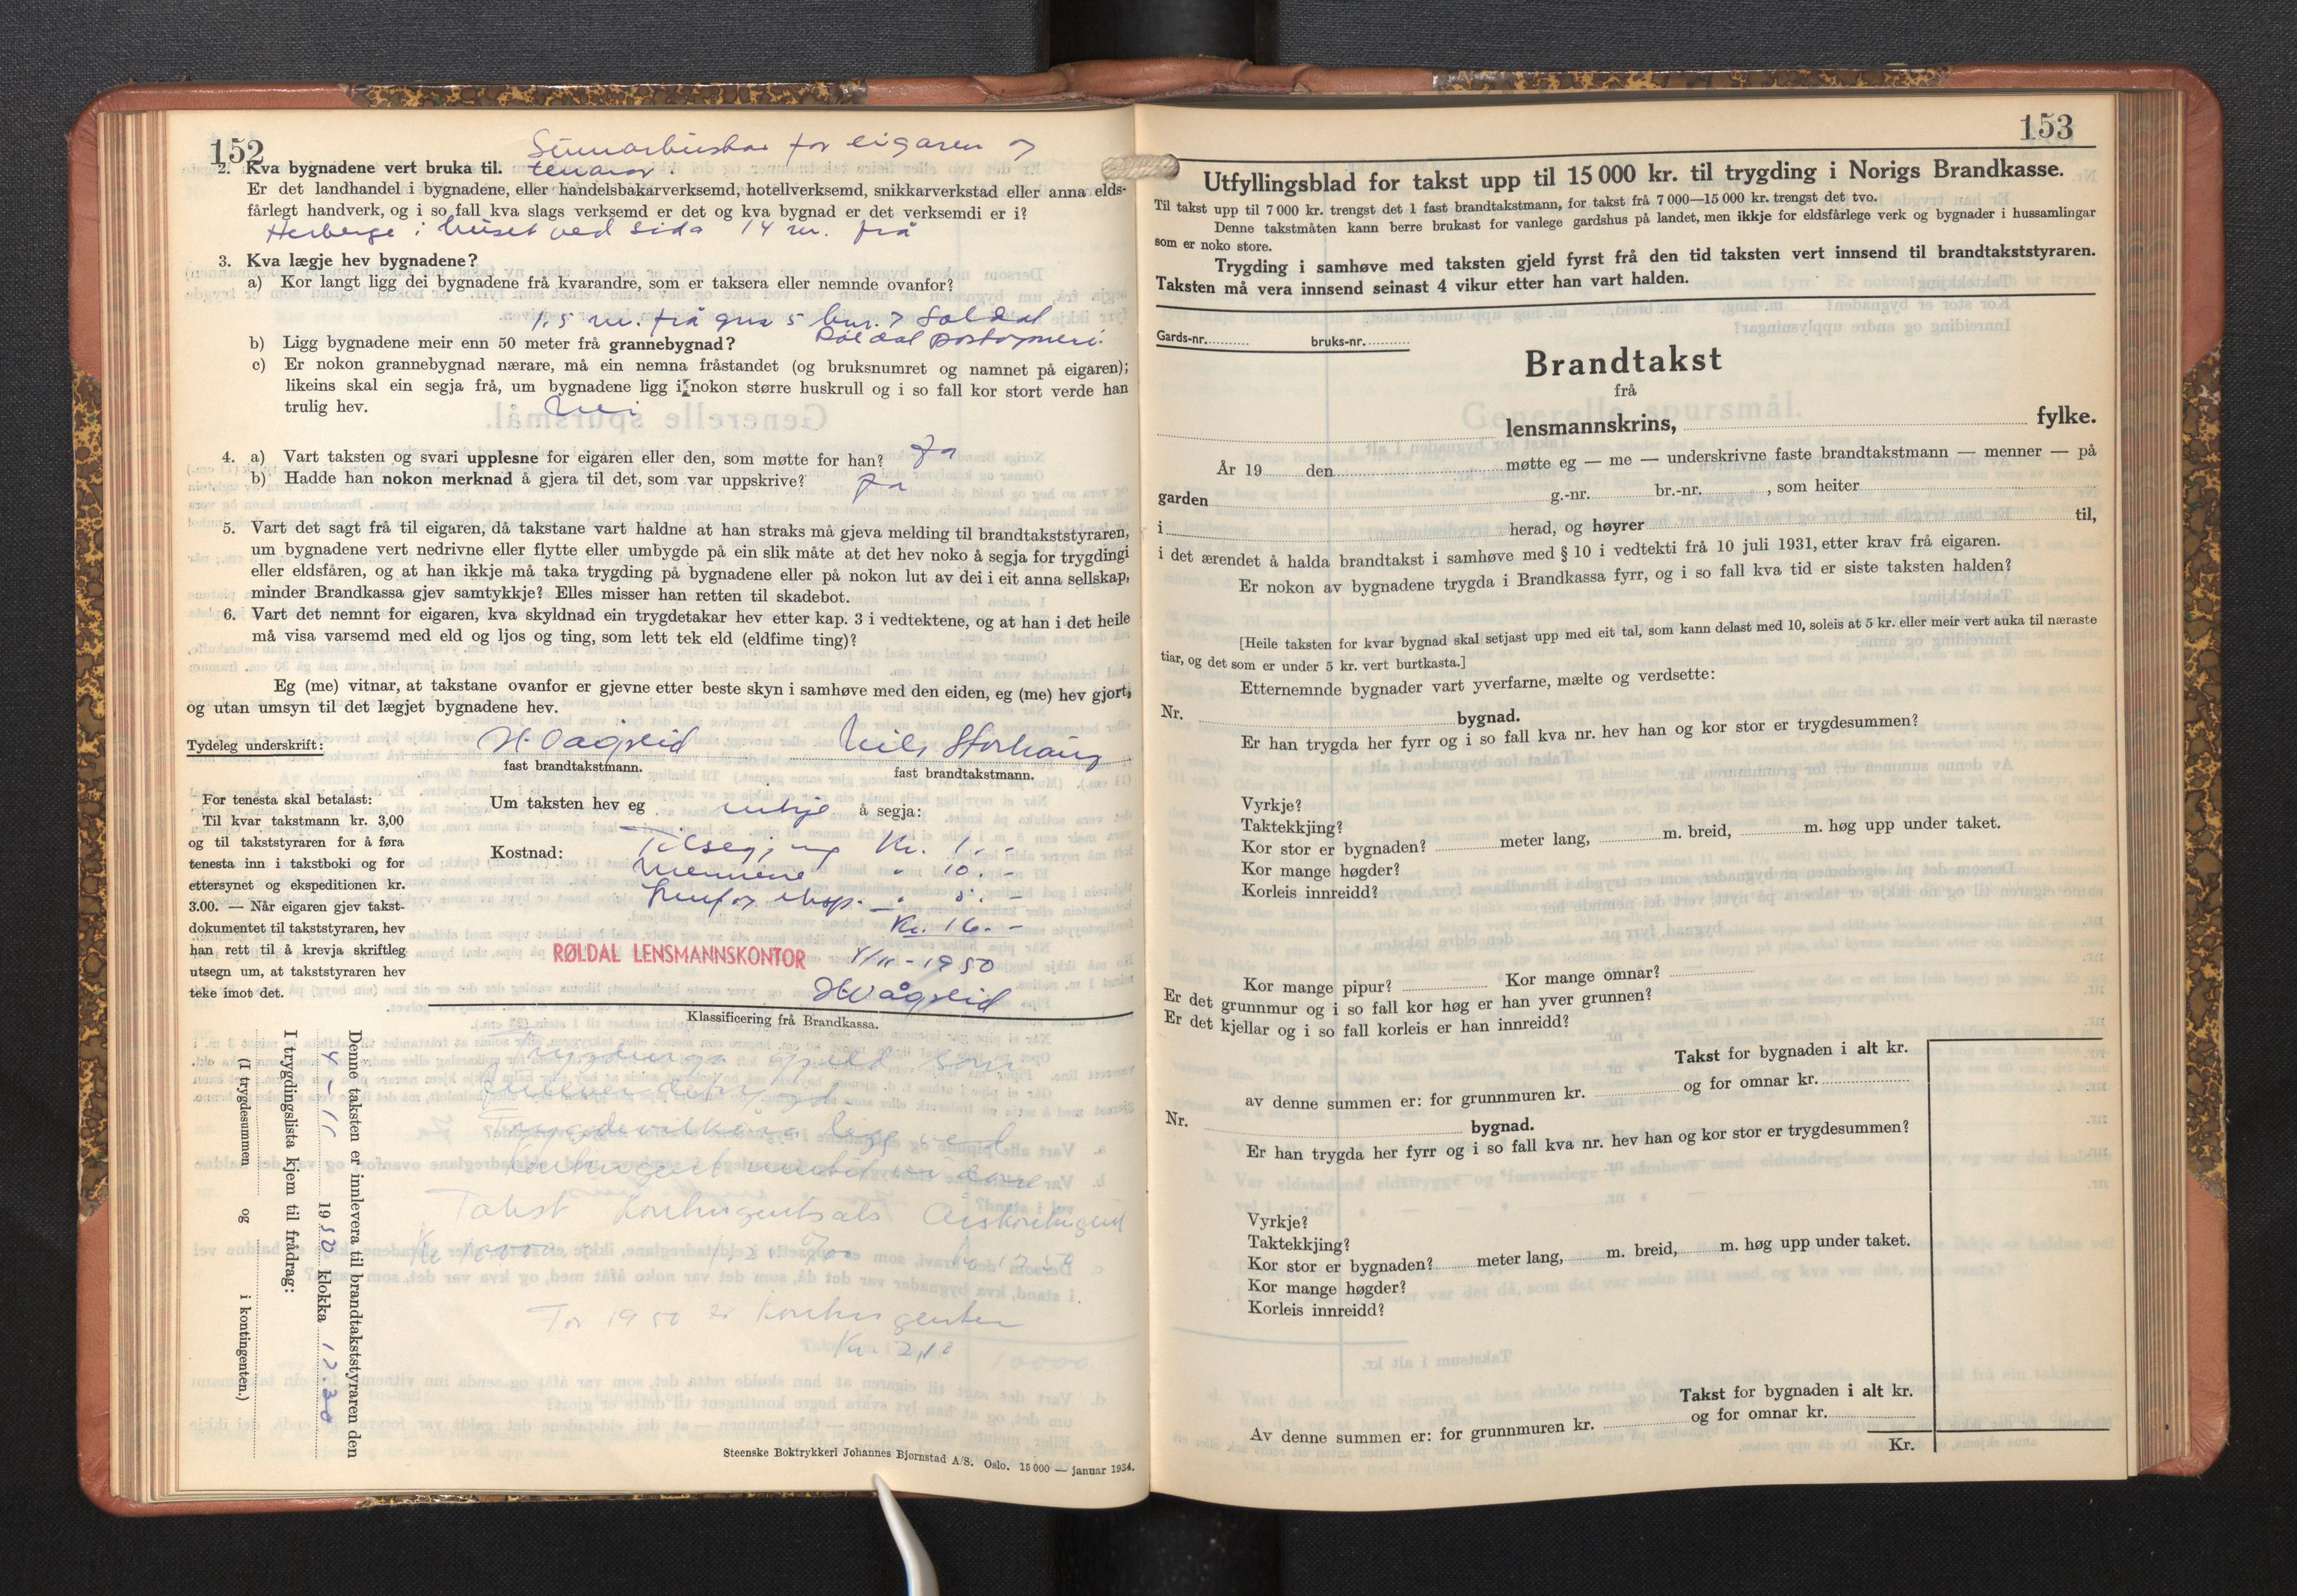 152
Sumarbustad for eigaren og
2. Kva bygnadene vert bruka til. tenarar.
Er det landhandel i bygnadene, eller handelsbakarverksemd, hotellverksemd, snikkarverkstad eller anna elds-
fårlegt handverk, og i so fall kva slags verksemd er det og kva bygnad er det verksemdi er i?
Herberge i huset ved sida 14 m. frå
3. Kva lægje hev bygnadene?
a) Kor langt ligg dei bygnadene frå kvarandre, som er taksera eller nemnde ovanfor?
1.5 m. frå gnr 5 bnr. 7
b) Ligg bygnadene meir enn 50 meter frå grannebygnad? Røldal postopneri.
c) Er nokon grannebygnad nærare, må ein nemna fråstandet (og bruksnumret og namnet på eigaren);
likeins skal ein segja frå, um bygnadene ligg i nokon større huskrull og i so fall kor stort verde han
trulig hev. Nei
4. a) Vart taksten og svari upplesne for eigaren eller den, som møtte for han? Ja
b) Hadde han nokon merknad å gjera til det, som var uppskrive? Ja
5. Vart det sagt frå til eigaren, då takstane vart haldne at han straks må gjeva melding til brandtakststyraren,
um bygnadene vert nedrivne eller flytte eller umbygde på ein slik måte at det hev noko å segja for trygdingi
eller eldsfåren, og at han ikkje må taka trygding på bygnadene eller på nokon lut av dei i eit anna sellskap,
minder Brandkassa gjev samtykkje? Elles misser han retten til skadebot.
6. Vart det nemnt for eigaren, kva skyldnad ein trygdetakar hev etter kap. 3 i vedtektene, og at han i det heile
må visa varsemd med eld og ljos og ting, som lett tek eld (eldfime ting)?
Eg (me) vitnar, at takstane ovanfor er gjevne etter beste skyn i samhøve med den eiden, eg (me) hev gjort,
og utan umsyn til det lægjet bygnadene hev.
Tydeleg underskrift: H. Vågslid Nils Storhaug
fast brandtakstmann. fast brandtakstmann.
For tenesta skal betalast:
Til kvar takstmann kr. 3,00
og til takststyraren for å føra
tenesta inn i takstboki og for
ettersynet og ekspeditionen kr.
3.00. — Når eigaren gjev takst-
dokumentet til takststyraren, hev
han rett til å krevja skriftleg
utsegn um, at takststyraren hev
teke imot det.
Um taksten hev eg inkje å segja:
Kostnad: Tilsegjing Kr. 1.-
Mennene " 10.-
eksp. " 5.-
Kr. 16.-
RØLDAL LENSMANNSKONTOR 4/11-1950
H Vågslid
Klassificering frå Brandkassa.
Trygdinga gjeld som
Trygdevilkåra ligg ved
Takst Kontingentsats Årskontingent
Kr 10000
For 1950 er kontingenten
Kr 2,10
Denne taksten er innlevera til brandtakststyraren den
4-11 1950 klokka 12.30
I trygdingslista kjem til frådrag:
(I trygdesummen og i kontingenten.)
Steenske Boktrykkeri Johannes Bjørnstad A/S. Oslo. 15 000 — januar 1934.
153
Utfyllingsblad for takst upp til 15 000 kr. til trygding i Norigs Brandkasse.
Til takst upp til 7 000 kr. trengst det 1 fast brandtakstmann, for takst frå 7 000—15 000 kr. trengst det tvo.
Denne takstmåten kann berre brukast for vanlege gardshus på landet, men ikkje for eldsfårlege verk og bygnader i hussamlingar
som er noko store.
Trygding i samhøve med taksten gjeld fyrst frå den tid taksten vert innsend til brandtakststyraren.
Taksten må vera innsend seinast 4 vikur etter han vart halden.
Gards-nr. bruks-nr.
Brandtakst
frå
lensmannskrins, fylke.
År 19 den møtte eg — me — underskrivne faste brandtakstmann — menner — på
garden g.-nr. br.-nr. , som heiter
i herad, og høyrer til,
i det ærendet å halda brandtakst i samhøve med § 10 i vedtekti frå 10 juli 1931, etter krav frå eigaren.
Er nokon av bygnadene trygda i Brandkassa fyrr, og i so fall kva tid er siste taksten halden?
[Heile taksten for kvar bygnad skal setjast upp med eit tal, som kann delast med 10, soleis at 5 kr. eller meir vert auka til næraste
tiar, og det som er under 5 kr. vert burtkasta.]
Etternemnde bygnader vart yverfarne, mælte og verdsette:
Nr. bygnad.
Er han trygda her fyrr og i so fall kva nr. hev han og kor stor er trygdesummen?
Vyrkje?
Taktekkjing?
Kor stor er bygnaden? meter lang, m. breid, m. høg upp under taket.
Kor mange høgder?
Korleis innreidd?
Kor mange pipur? Kor mange omnar?
Er det grunnmur og i so fall kor høg er han yver grunnen?
Er det kjellar og i so fall korleis er han innreidd?
Takst for bygnaden i alt kr.
av denne summen er: for grunnmuren kr. og for omnar kr.
Nr. bygnad.
Er han trygda her fyrr og i so fall kva nr. hev han og kor stor er trygdesummen?
Vyrkje?
Taktekkjing?
Kor stor er bygnaden? meter lang, m. breid, m. høg upp under taket.
Kor mange høgder?
Korleis innreidd?
Takst for bygnaden i alt kr.
Av denne summen er: for grunnmuren kr. og for omnar kr.
Kr.